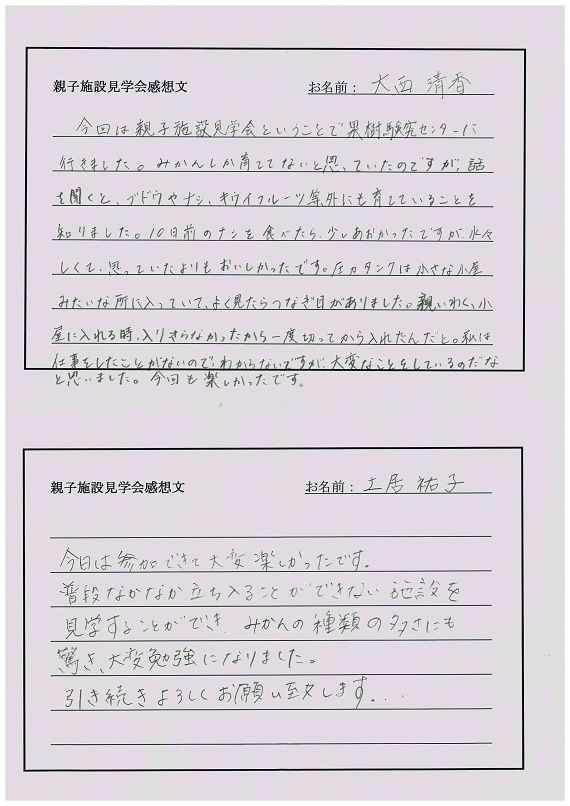 親子施設見学会感想文 お名前： 大西 清香
今回は親子施設見学会ということで果樹試験究センターに
行きました。みかんしか育ててないと思っていたのですが、話
を聞くと、ブドウやナシ、キウイフルーツ等外にも育てていることを
知りました。10日前のナシを食べたら、少しあおかったですが、水々
しくて、思っていたよりもおいしかったです。圧力タンクは小さな小屋
みたいな所に入っていて、よく見たらつなぎ目がありました。親いわく、小
屋に入れる時、入りきらなかったから一度切ってから入れたんだと。私は
仕事をしたことがないので、わからないですが、大変なことをしているのだな
と思いました。今回も楽しかったです。
親子施設見学会感想文 お名前： 土居 祐子
今日は参加できて大変楽しかったです。
普段なかなか立ち入ることができない施設を
見学することができ、みかんの種類の多さにも
驚き、大変勉強になりました。
引き続きよろしくお願い致します。..